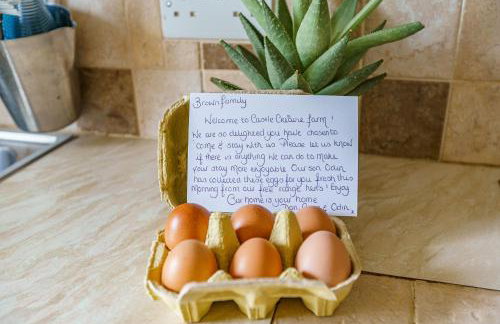 Brown family
Welcome to Castle Culture farm !
We are so delighted you have chosen to
come & stay with us. Please let us know
if there is anything we can do to make
your stay more enjoyable. Our son Odin
has collected these eggs for you fresh this
morning from our free range hens! Enjoy
Our home is your home
& Odin